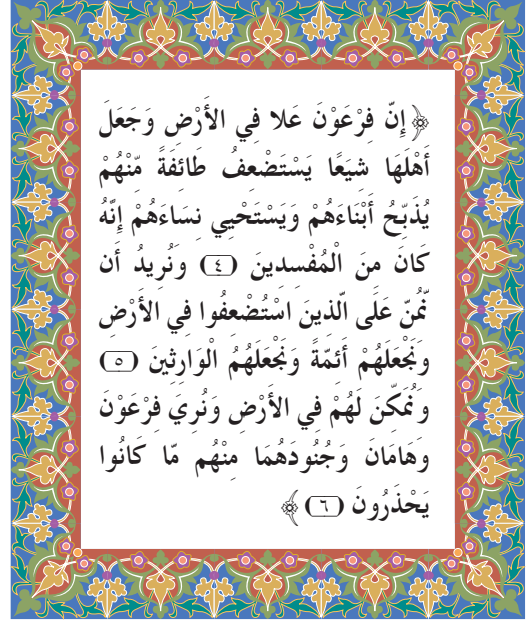 ﴿إِنّ فِرْعَوْنَ عَلا فِي الأَرْضِ وَجَعَلَ
أَهْلَهَا شِيَعًا يَسْتَضْعِفُ طَائِفَةً مِّنْهُمْ
يُذَبِّحُ أَبْنَاءَهُمْ وَيَسْتَحْيِي نِسَاءَهُمْ إِنَّهُ
كَانَ مِنَ الْمُفْسِدِينَ (٤) وَنُرِيدُ أَن
نَّمُنّ عَلَى الّذِينَ اسْتُضْعِفُوا فِي الأَرْضِ
وَنَجْعَلَهُمْ أَئِمّةً وَنَجْعَلَهُمُ الْوَارِثِينَ (٥)
وَنُمَكِّنَ لَهُمْ فِي الأَرْضِ وَنُرِيَ فِرْعَوْنَ
وَهَامَانَ وَجُنُودَهُمَا مِنْهُم مّا كَانُوا
يَحْذَرُونَ (٦)﴾